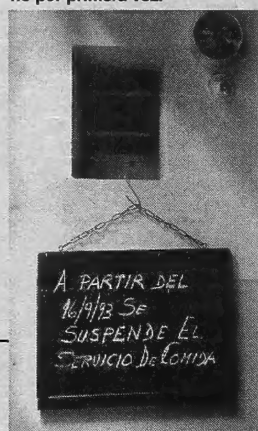 no por primera vez.
A PARTIR DEL
16/9/93 SE
SUSPENDE EL
SERVICIO DE COMIDA